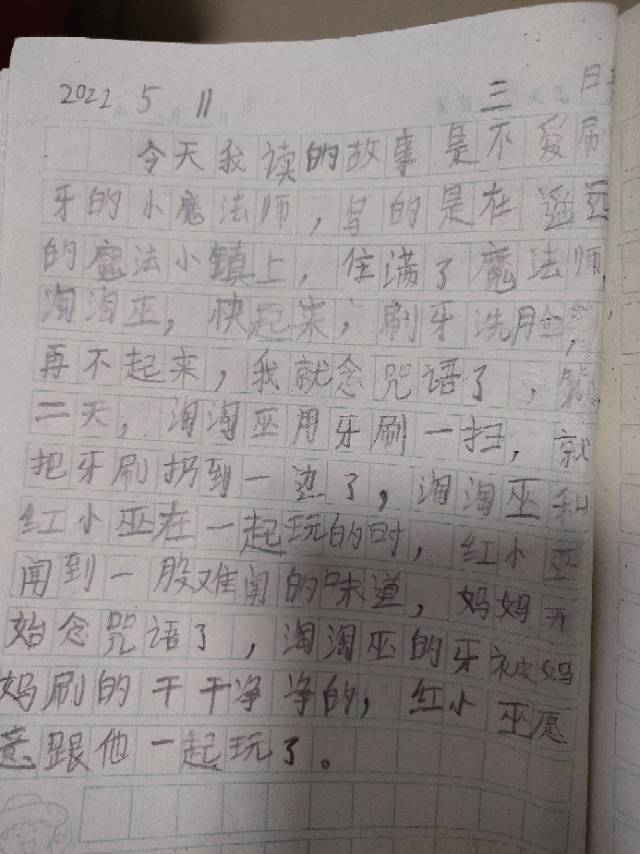 2022年5月11日 星期三 天气 日
今天我读的故事是不爱刷
牙的小魔法师，写的是在遥远
的魔法小镇上，住满了魔法师，
淘淘巫，快起来，刷牙洗脸，
再不起来，我就念咒语了，第
二天，淘淘巫用牙刷一扫，就
把牙刷扔到一边了，淘淘巫和
红小巫在一起玩的时，红小巫
闻到一股难闻的味道，妈妈开
始念咒语了，淘淘巫的牙被妈
妈刷的干干净净的，红小巫愿
意跟他一起玩了。